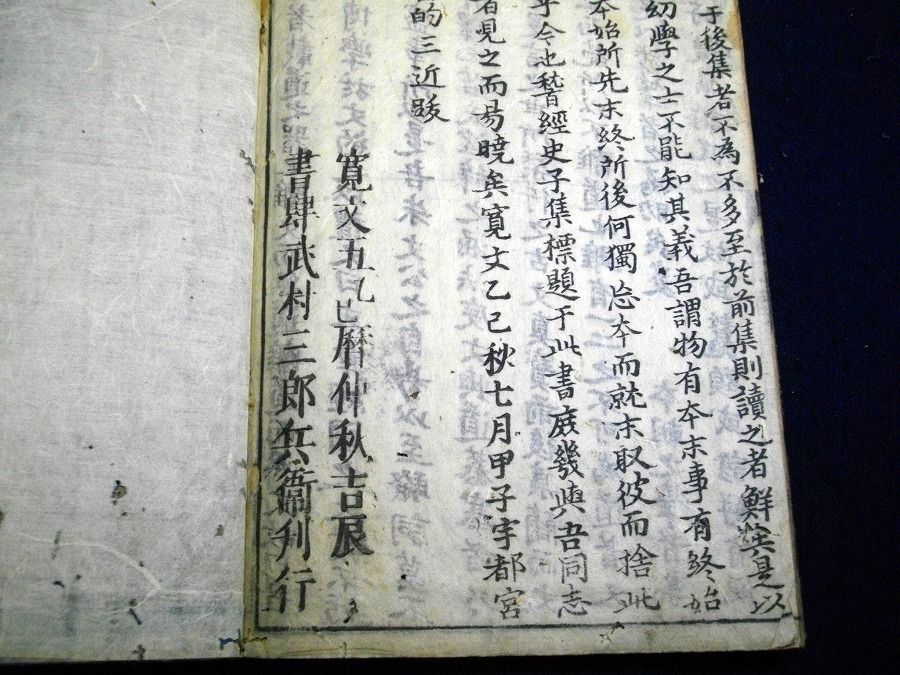 于後集者不為不多至於前集則讀之者鮮矣是以
幼學之士不能知其義吾謂物有夲末事有終始
夲始所先末終所後何獨忘夲而就末取彼而捨此
乎今也稽經史子集標題于此書庻幾與吾同志
者見之而昜曉矣寛文乙巳秋七月甲子宇都宮
的三近跋
寛文五乙巳曆仲秋吉辰
書肆武村三郎兵衞刋行